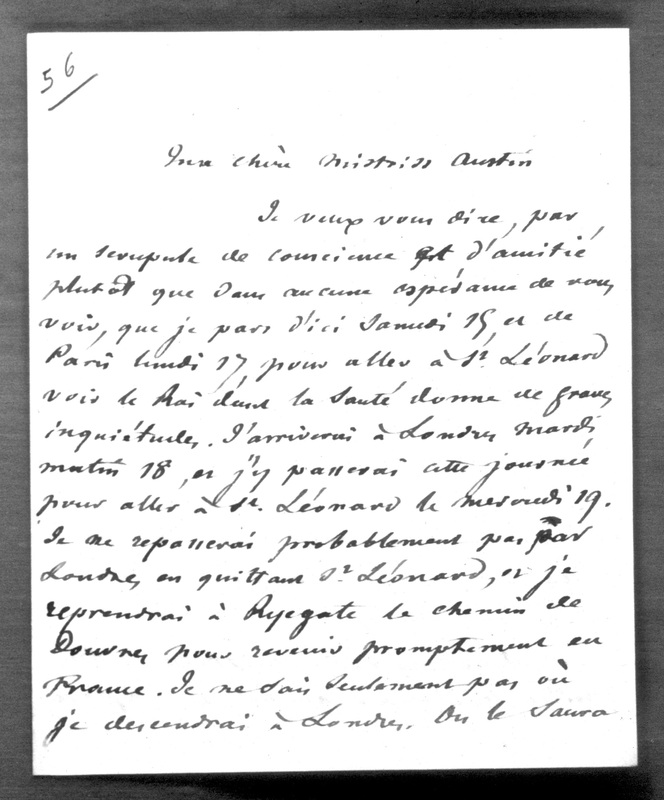 56
Ma chère Mistriss Austin
Je veux vous dire, par
un scrupule de conscience et d'amitié
plutôt que dans aucune espérance de vous
voir, que je pars d'ici Samedi 15 et de
Paris lundi 17 pour aller à St. Léonard
voir le Roi dont la Santé donne de graves
inquiétudes. J'arriverai à Londres Mardi
matin 18, et j'y passerai cette journée
pour aller à St. Léonard le mercredi 19.
Je ne repasserai probablement pas par
Londres en quittant St. Léonard, et je
reprendrai à Ryegate le chemin de
Douvres pour revenir promptement en
France. Je ne sais seulement pas où
je descendrai à Londres. On le Saura